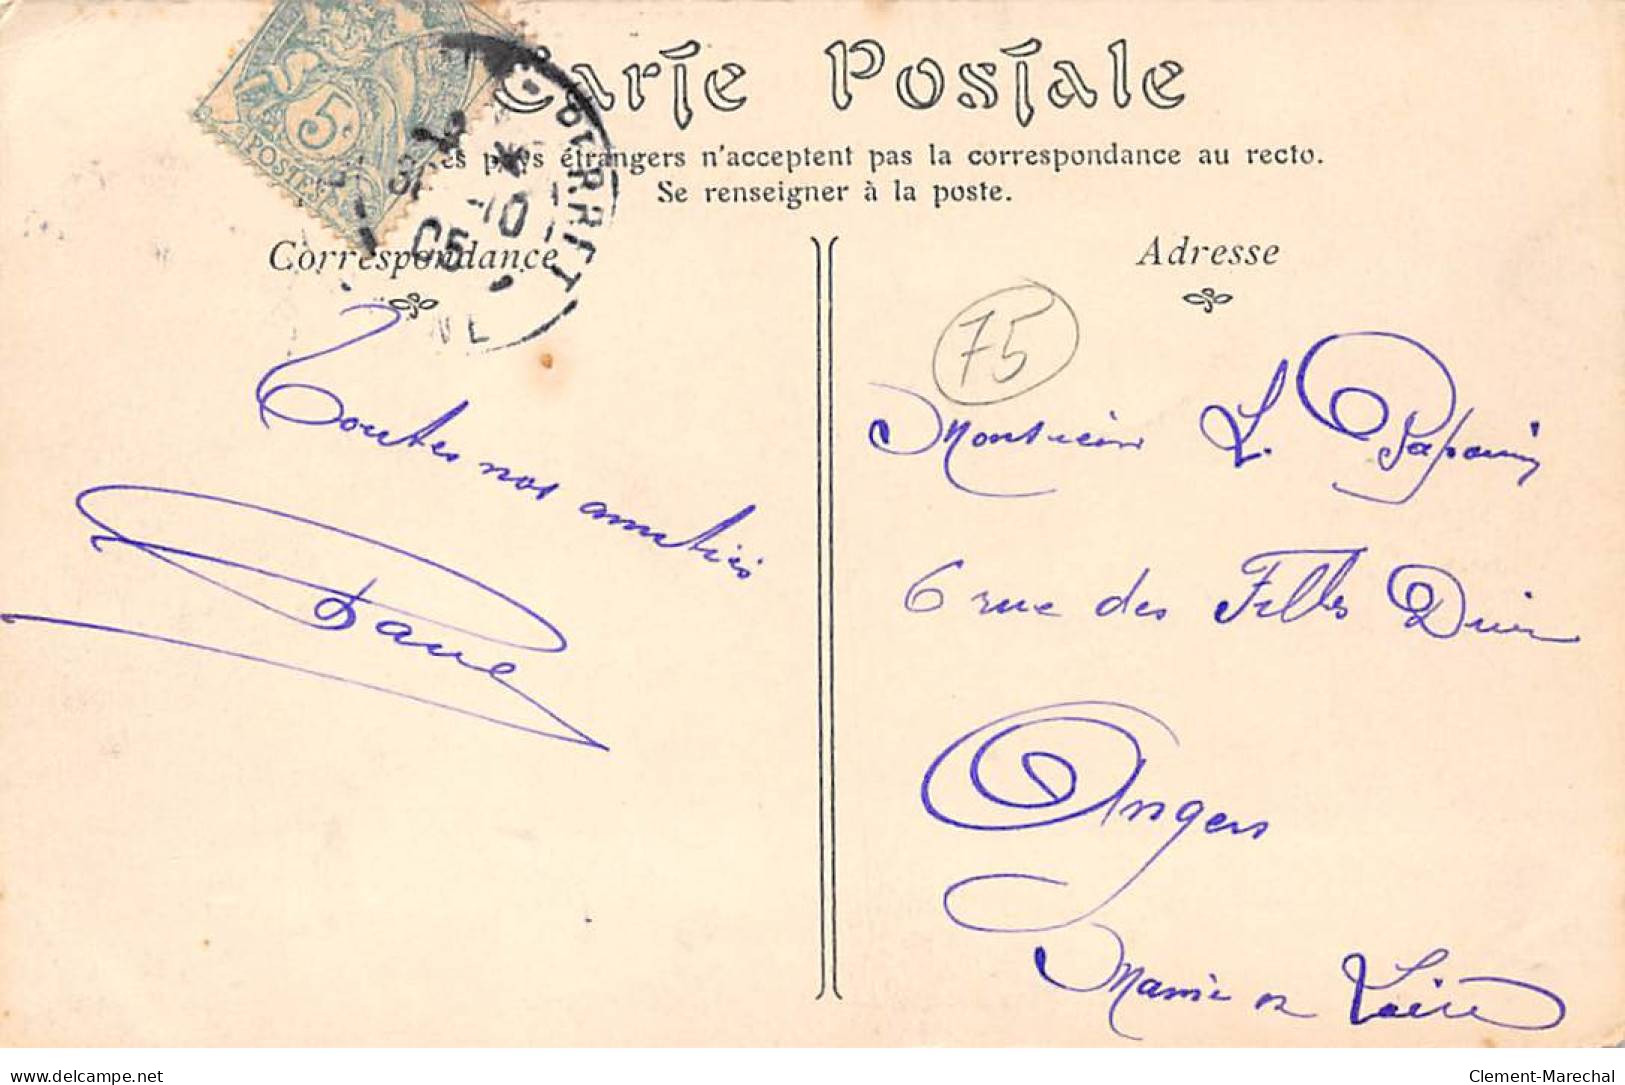 Carte Postale
es pays étrangers n'acceptent pas la correspondance au recto.
Se renseigner à la poste.
5
POSTES
10
05
Correspondance
Adresse
75
Toutes nos amitiés
Monsieur L.
6 rue des Filles Dieu
Angers
Maine et Loire
delcampe.net
Clement-Marechal